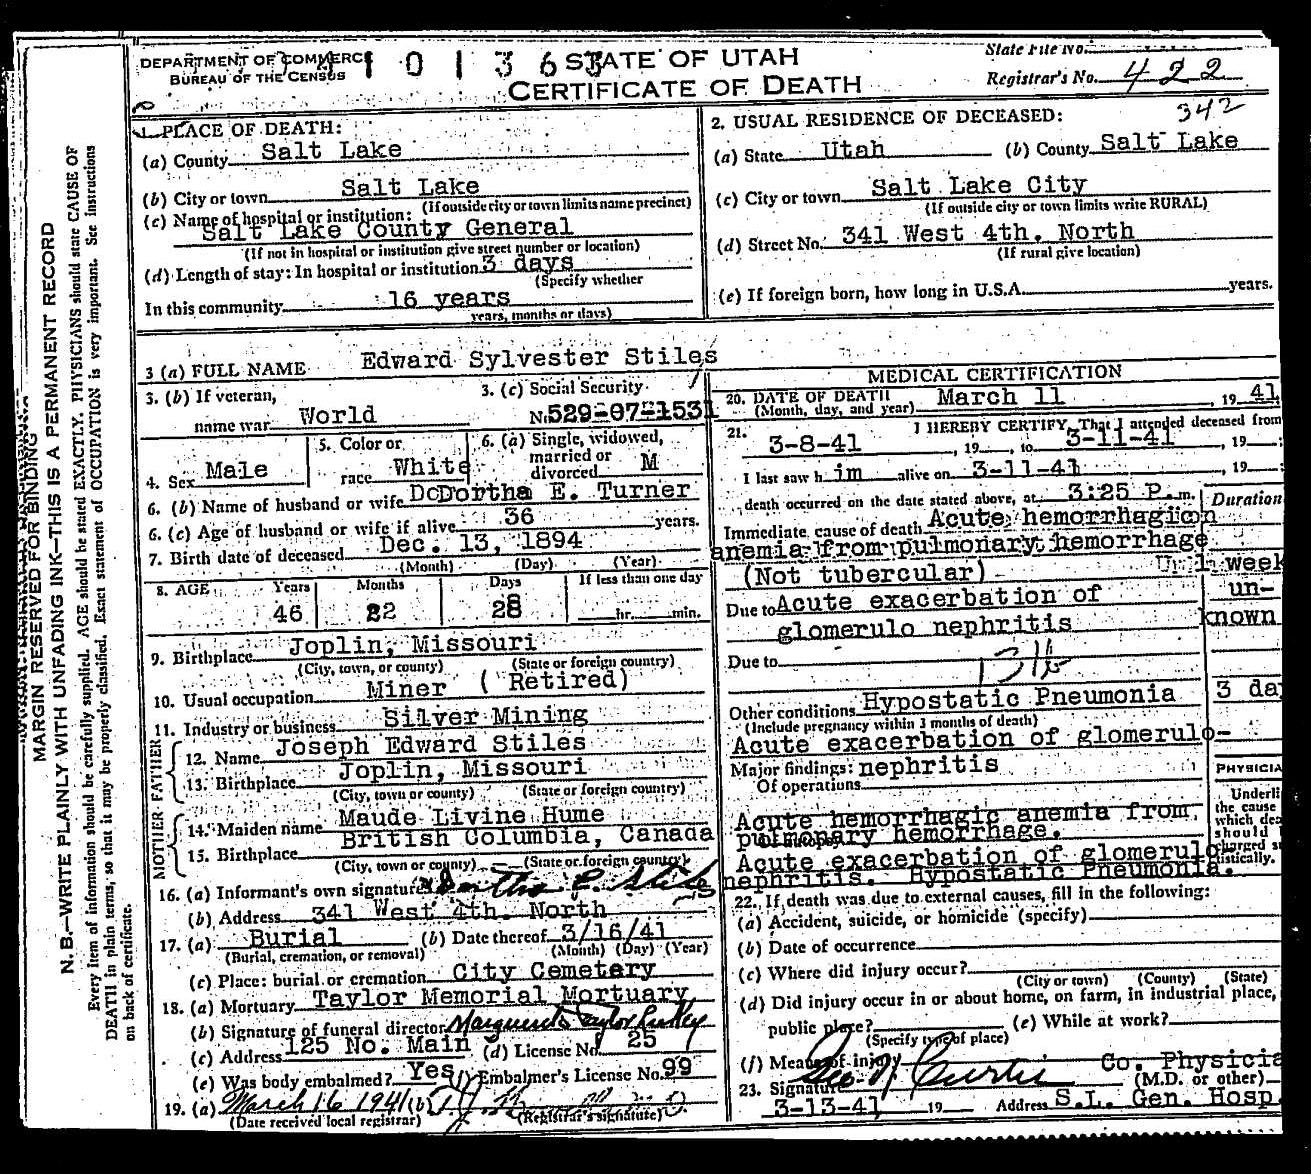 DEPARTMENT OF COMMERCE
BUREAU OF THE CENSUS
STATE OF UTAH
CERTIFICATE OF DEATH
State File No.
Registrar's No. 422
342
1. PLACE OF DEATH:
(a) County Salt Lake
(b) City or town Salt Lake
(If outside city or town limits name precinct)
(c) Name of hospital or institution:
Salt Lake County General
(If not in hospital or institution give street number or location)
(d) Length of stay: In hospital or institution 3 days
(Specify whether
In this community 16 years
years, months or days)
2. USUAL RESIDENCE OF DECEASED:
(a) State Utah (b) County Salt Lake
(c) City or town Salt Lake City
(If outside city or town limits write RURAL)
(d) Street No. 341 West 4th. North
(If rural give location)
(e) If foreign born, how long in U.S.A. years.
3 (a) FULL NAME Edward Sylvester Stiles
3. (b) If veteran,
name war World
3. (c) Social Security
No. 529-07-1531
4. Sex Male
5. Color or
race White
6. (a) Single, widowed,
married or
divorced M
6. (b) Name of husband or wife Dortha E. Turner
6. (c) Age of husband or wife if alive 36 years.
7. Birth date of deceased Dec. 13, 1894
(Month) (Day) (Year)
8. AGE Years Months Days If less than one day
46 22 28 hr. min.
9. Birthplace Joplin, Missouri
(City, town, or county) (State or foreign country)
10. Usual occupation Miner (Retired)
11. Industry or business Silver Mining
FATHER
12. Name Joseph Edward Stiles
13. Birthplace Joplin, Missouri
(City, town or county) (State or foreign country)
MOTHER
14. Maiden name Maude Livine Hume
15. Birthplace British Columbia, Canada
(City, town or county) (State or foreign country)
16. (a) Informant's own signature Dortha E. Stiles
(b) Address 341 West 4th. North
17. (a) Burial (b) Date thereof 3/16/41
(Burial, cremation, or removal) (Month) (Day) (Year)
(c) Place: burial or cremation City Cemetery
18. (a) Mortuary Taylor Memorial Mortuary
(b) Signature of funeral director Marguerite Taylor
(c) Address 125 No. Main (d) License No. 25
(e) Was body embalmed? Yes (f) Embalmer's License No. 99
19. (a) March 16 1941 (b)
(Date received local registrar) (Registrar's signature)
MEDICAL CERTIFICATION
20. DATE OF DEATH March 11, 1941
(Month, day, and year)
21. I HEREBY CERTIFY, That I attended deceased from
3-8-41, 19 , to 3-11-41, 19 :
I last saw him alive on 3-11-41, 19 :
death occurred on the date stated above, at 3:25 P. m. Duration
Immediate cause of death Acute hemorrhagic
anemia from pulmonary hemorrhage
(Not tubercular) 1 week
Due to Acute exacerbation of un-
glomerulo nephritis known
Due to
131b
Other conditions Hypostatic Pneumonia 3 da
(Include pregnancy within 3 months of death)
Acute exacerbation of glomerulo-
Major findings: nephritis
Of operations
PHYSICIA
Underli
the cause
which dea
should
charged s
tistically.
Acute hemorrhagic anemia from
pulmonary hemorrhage.
Of autopsy
Acute exacerbation of glomerulo
nephritis. Hypostatic Pneumonia.
22. If death was due to external causes, fill in the following:
(a) Accident, suicide, or homicide (specify)
(b) Date of occurrence
(c) Where did injury occur?
(City or town) (County) (State)
(d) Did injury occur in or about home, on farm, in industrial place,
public place? (e) While at work?
(Specify type of place)
(f) Means of injury
Co. Physicia
23. Signature Geo N Curtis (M.D. or other)
3-13-41 19 Address S.L. Gen. Hosp.
MARGIN RESERVED FOR BINDING
N. B.—WRITE PLAINLY WITH UNFADING INK—THIS IS A PERMANENT RECORD
Every item of information should be carefully supplied. AGE should be stated EXACTLY. PHYSICIANS should state CAUSE OF
DEATH in plain terms, so that it may be properly classified. Exact statement of OCCUPATION is very important. See instructions
on back of certificate.